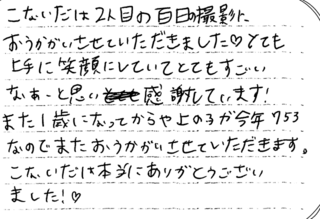 こないだは2人目の百日撮影に
おうかがいさせていただきました♡とても
上手に笑顔にしていてとてもすごい
なぁーと思い 感謝しています!
また1歳になってからや上の子が今年753
なのでまたおうかがいさせていただきます。
こないだは本当にありがとうござい
ました!♡